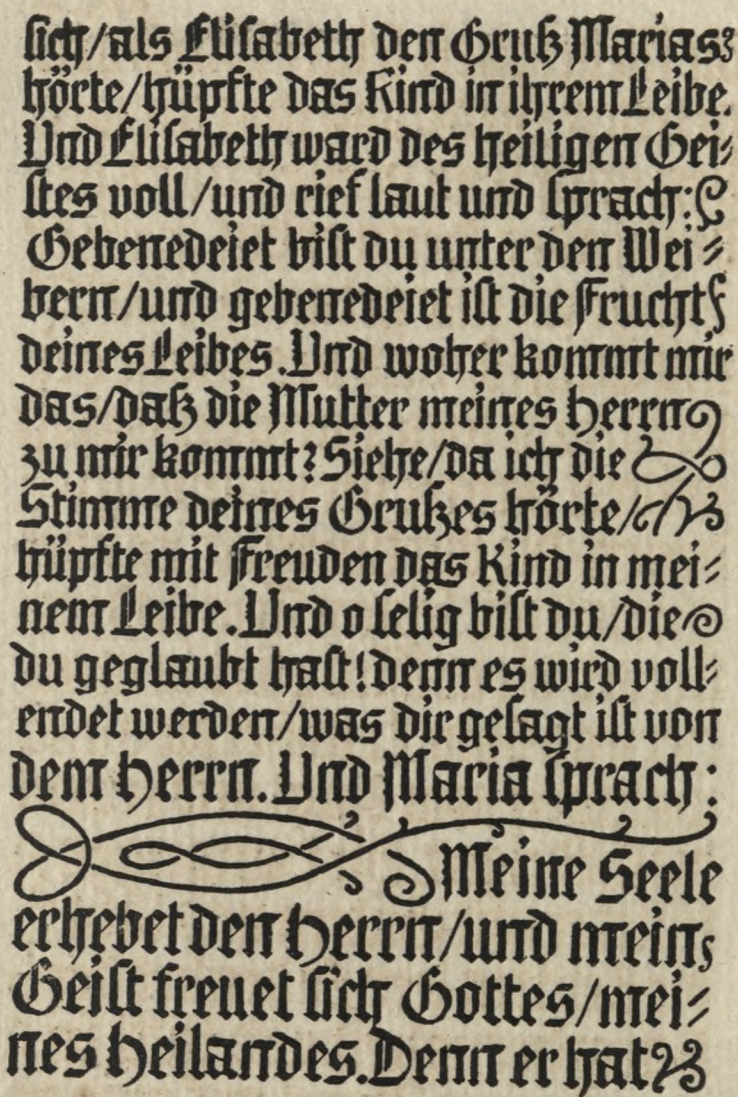 sich/als Elisabeth den Gruß Marias
hörte/hüpfte das Kind in ihrem Leibe.
Und Elisabeth ward des heiligen Gei⸗
stes voll/und rief laut und sprach:
Gebenedeiet bist du unter den Wei⸗
bern/und gebenedeiet ist die Frucht
deines Leibes. Und woher kommt mir
das/daß die Mutter meines Herrn
zu mir kommt? Siehe/da ich die
Stimme deines Grußes hörte/
hüpfte mit Freuden das Kind in mei⸗
nem Leibe. Und o selig bist du/die
du geglaubt hast! denn es wird voll⸗
endet werden/was dir gesagt ist von
dem Herrn. Und Maria sprach:
Meine Seele
erhebet den Herrn/und mein
Geist freuet sich Gottes/mei⸗
nes Heilandes. Denn er hat